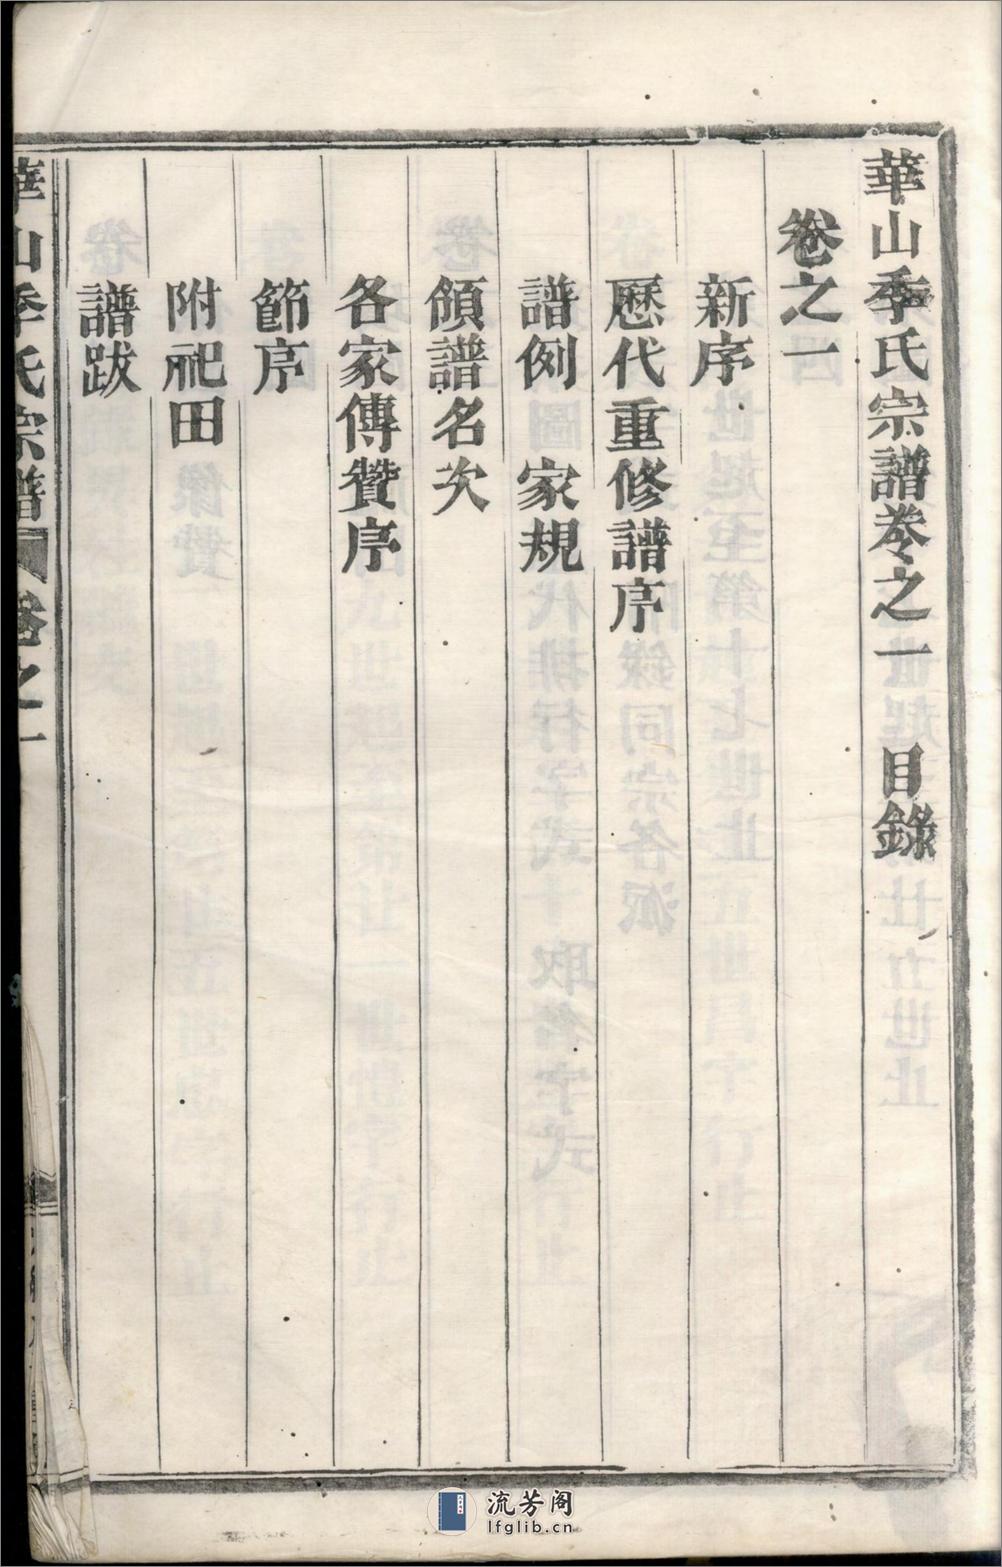 華山季氏宗譜卷之一 目錄
卷之一
新序
歷代重修譜序
譜例 家規
領譜名次
各家傳贊序
節序
附祀田
譜跋
華山季氏宗譜 卷之一
流芳阁
lfglib.cn